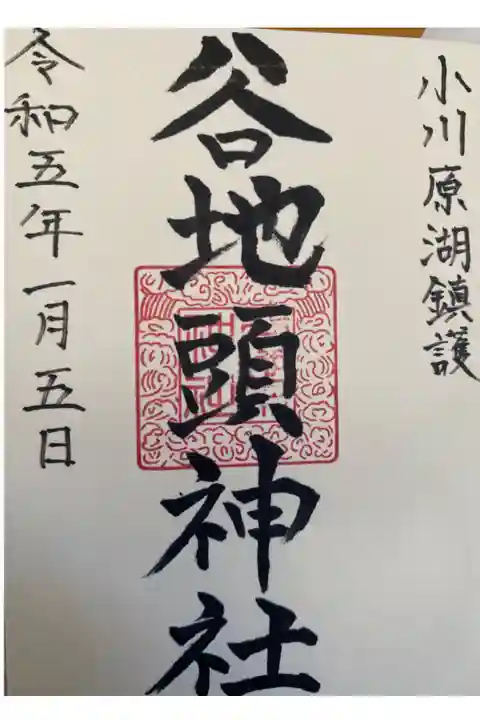 小川原湖鎮護
谷地頭神社
令和五年一月五日